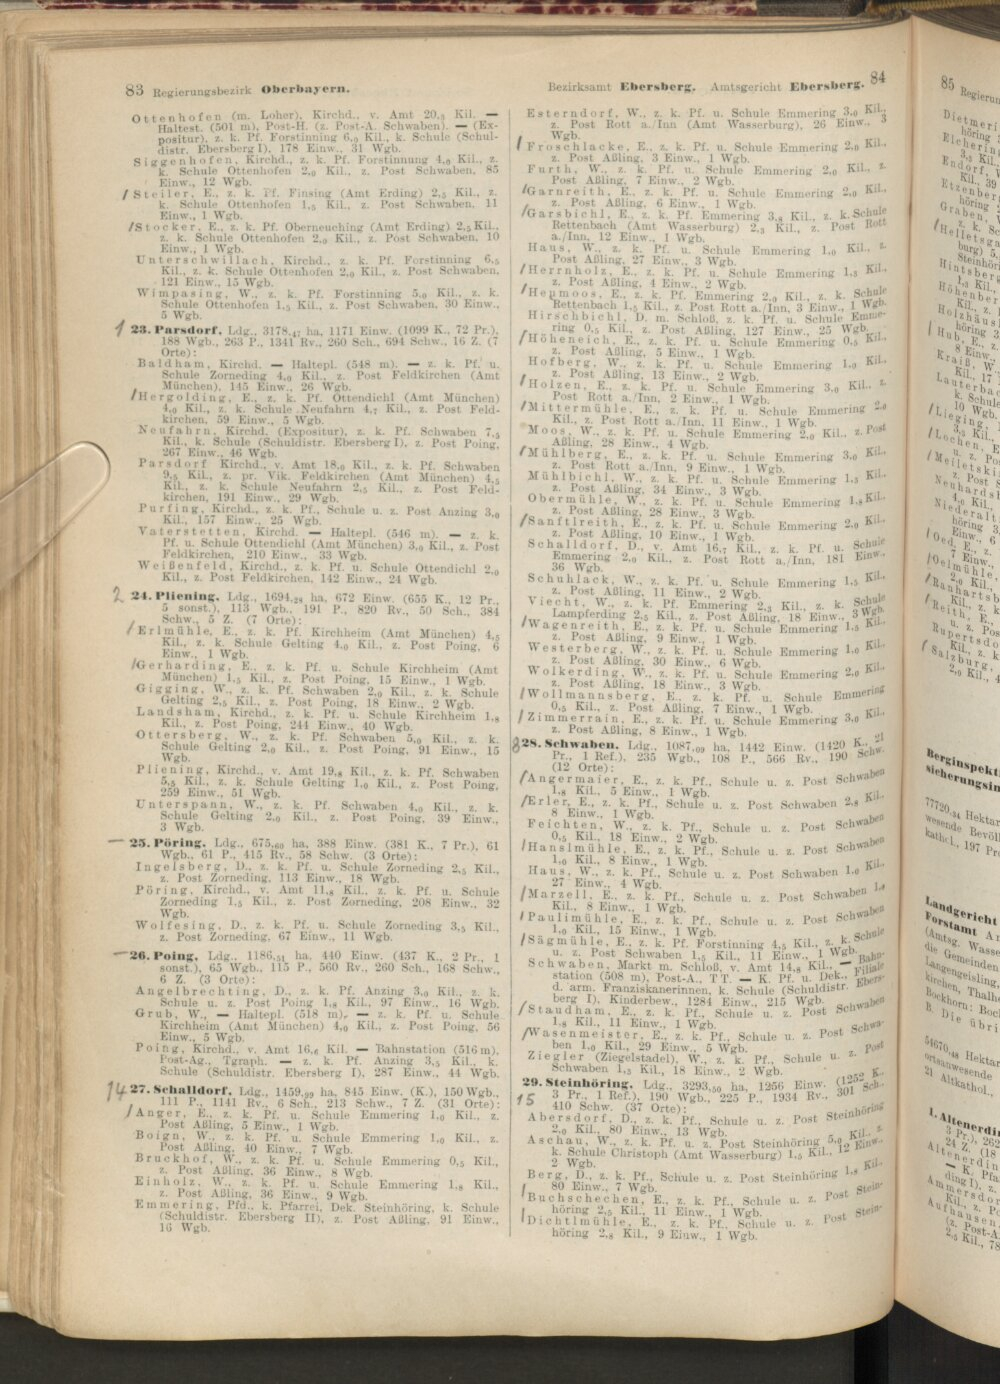 83 Regierungsbezirk Oberbayern.
Ottenhofen (m. Loher), Kirchd., v. Amt 20,3 Kil. —
Haltest. (501 m), Post-H. (z. Post-A. Schwaben). — (Ex-
positur), z. k. Pf. Forstinning 6,0 Kil., k. Schule (Schul-
distr. Ebersberg I), 178 Einw., 31 Wgb.
Siggenhofen, Kirchd., z. k. Pf. Forstinnung 4,0 Kil., z.
k. Schule Ottenhofen 2,0 Kil., z. Post Schwaben, 85
Einw., 12 Wgb.
/ Steiler, E., z. k. Pf. Finsing (Amt Erding) 2,5 Kil., z.
k. Schule Ottenhofen 1,5 Kil., z. Post Schwaben, 11
Einw., 1 Wgb.
/ Stocker, E., z. k. Pf. Oberneuching (Amt Erding) 2,5 Kil.,
z. k. Schule Ottenhofen 2,0 Kil., z. Post Schwaben, 10
Einw., 1 Wgb.
Unterschwillach, Kirchd., z. k. Pf. Forstinning 6,5
Kil., z. k. Schule Ottenhofen 2,0 Kil., z. Post Schwaben,
121 Einw., 15 Wgb.
Wimpasing, W., z. k. Pf. Forstinning 5,0 Kil., z. k.
Schule Ottenhofen 1,5 Kil., z. Post Schwaben, 30 Einw.,
5 Wgb.
1 23. Parsdorf, Ldg., 3178,47 ha, 1171 Einw. (1099 K., 72 Pr.),
188 Wgb., 263 P., 1341 Rv., 260 Sch., 694 Schw., 16 Z. (7
Orte):
Baldham, Kirchd. — Haltepl. (548 m). — z. k. Pf. u.
Schule Zorneding 4,0 Kil., z. Post Feldkirchen (Amt
München), 145 Einw., 26 Wgb.
/ Hergolding, E., z. k. Pf. Ottendichl (Amt München)
4,0 Kil., z. k. Schule Neufahrn 4,7 Kil., z. Post Feld-
kirchen, 59 Einw., 5 Wgb.
Neufahrn, Kirchd. (Expositur), z. k. Pf. Schwaben 7,5
Kil., k. Schule (Schuldistr. Ebersberg I), z. Post Poing,
267 Einw., 46 Wgb.
Parsdorf Kirchd., v. Amt 18,0 Kil., z. k. Pf. Schwaben
9,5 Kil., z. pr. Vik. Feldkirchen (Amt München) 4,5
Kil., z. k. Schule Neufahrn 2,5 Kil., z. Post Feld-
kirchen, 191 Einw., 29 Wgb.
Purfing, Kirchd., z. k. Pf., Schule u. z. Post Anzing 3,0
Kil., 157 Einw., 25 Wgb.
Vaterstetten, Kirchd. — Haltepl. (546 m). — z. k.
Pf. u. Schule Ottendichl (Amt München) 3,0 Kil., z. Post
Feldkirchen, 210 Einw., 33 Wgb.
Weißenfeld, Kirchd., z. k. Pf. u. Schule Ottendichl 2,0
Kil., z. Post Feldkirchen, 142 Einw., 24 Wgb.
2 24. Pliening, Ldg., 1694,28 ha, 672 Einw. (655 K., 12 Pr.,
5 sonst.), 113 Wgb., 191 P., 820 Rv., 50 Sch., 384
Schw., 5 Z. (7 Orte):
/ Erlmühle, E., z. k. Pf. Kirchheim (Amt München) 4,5
Kil., z. k. Schule Gelting 4,0 Kil., z. Post Poing, 6
Einw., 1 Wgb.
/ Gerharding, E., z. k. Pf. u. Schule Kirchheim (Amt
München) 1,5 Kil., z. Post Poing, 15 Einw., 1 Wgb.
Gigging, W., z. k. Pf. Schwaben 2,0 Kil., z. k. Schule
Gelting 2,5 Kil., z. Post Poing, 18 Einw., 2 Wgb.
Landsham, Kirchd., z. k. Pf. u. Schule Kirchheim 1,8
Kil., z. Post Poing, 244 Einw., 40 Wgb.
Ottersberg, W., z. k. Pf. Schwaben 5,0 Kil., z. k.
Schule Gelting 2,0 Kil., z. Post Poing, 91 Einw., 15
Wgb.
Pliening, Kirchd., v. Amt 19,8 Kil., z. k. Pf. Schwaben
5,5 Kil., z. k. Schule Gelting 1,0 Kil., z. Post Poing,
259 Einw., 51 Wgb.
Unterspann, W., z. k. Pf. Schwaben 4,0 Kil., z. k.
Schule Gelting 2,0 Kil., z. Post Poing, 39 Einw.,
3 Wgb.
— 25. Pöring, Ldg., 675,60 ha, 388 Einw. (381 K., 7 Pr.), 61
Wgb., 61 P., 415 Rv., 58 Schw. (3 Orte):
Ingelsberg, D., z. k. Pf. u. Schule Zorneding 2,5 Kil.,
z. Post Zorneding, 113 Einw., 18 Wgb.
Pöring, Kirchd., v. Amt 11,8 Kil., z. k. Pf. u. Schule
Zorneding 1,5 Kil., z. Post Zorneding, 208 Einw., 32
Wgb.
Wolfesing, D., z. k. Pf. u. Schule Zorneding 3,5 Kil.,
z. Post Zorneding, 67 Einw., 11 Wgb.
— 26. Poing, Ldg., 1186,51 ha, 440 Einw. (437 K., 2 Pr., 1
sonst.), 65 Wgb., 115 P., 560 Rv., 260 Sch., 168 Schw.,
6 Z. (3 Orte):
Angelbrechting, D., z. k. Pf. Anzing 3,0 Kil., z. k.
Schule u. z. Post Poing 1,8 Kil., 97 Einw., 16 Wgb.
Grub, W., — Haltepl. (518 m), — z. k. Pf. u. Schule
Kirchheim (Amt München) 4,0 Kil., z. Post Poing, 56
Einw., 5 Wgb.
Poing, Kirchd., v. Amt 16,6 Kil. — Bahnstation (516 m),
Post-Ag., Tgraph. — z. k. Pf. Anzing 3,5 Kil., k.
Schule (Schuldistr. Ebersberg I), 287 Einw., 44 Wgb.
14 27. Schalldorf, Ldg., 1459,99 ha, 845 Einw. (K.), 150 Wgb.,
111 P., 1141 Rv., 6 Sch., 213 Schw., 7 Z. (31 Orte):
/ Anger, E., z. k. Pf. u. Schule Emmering 1,0 Kil., z.
Post Aßling, 5 Einw., 1 Wgb.
Boign, W., z. k. Pf. u. Schule Emmering 1,0 Kil., z.
Post Aßling, 40 Einw., 7 Wgb.
Bruckhof, W., z. k. Pf. u. Schule Emmering 0,5 Kil.,
z. Post Aßling, 36 Einw., 8 Wgb.
Einholz, W., z. k. Pf. u. Schule Emmering 1,8 Kil.,
z. Post Aßling, 36 Einw., 9 Wgb.
Emmering, Pfd., k. Pfarrei, Dek. Steinhöring, k. Schule
(Schuldistr. Ebersberg II), z. Post Aßling, 91 Einw.,
16 Wgb.
Bezirksamt Ebersberg. Amtsgericht Ebersberg. 84
Esterndorf, W., z. k. Pf. u. Schule Emmering 3,0 Kil.,
z. Post Rott a./Inn (Amt Wasserburg), 26 Einw., 3
Wgb.
/ Froschlacke, E., z. k. Pf. u. Schule Emmering 2,0 Kil.,
z. Post Aßling, 3 Einw., 1 Wgb.
Furth, W., z. k. Pf. u. Schule Emmering 2,0 Kil., z.
Post Aßling, 7 Einw., 2 Wgb.
/ Garnreith, E., z. k. Pf. u. Schule Emmering 2,0 Kil.,
z. Post Aßling, 6 Einw., 1 Wgb.
/ Garsbichl, E., z. k. Pf. Emmering 3,8 Kil., z. k. Schule
Rettenbach (Amt Wasserburg) 2,3 Kil., z. Post Rott
a./Inn, 12 Einw., 1 Wgb.
Haus, W., z. k. Pf. u. Schule Emmering 1,0 Kil., z.
Post Aßling, 27 Einw., 3 Wgb.
/ Herrnholz, E., z. k. Pf. u. Schule Emmering 1,3 Kil.,
z. Post Aßling, 4 Einw., 2 Wgb.
/ Heumoos, E., z. k. Pf. Emmering 2,0 Kil., z. k. Schule
Rettenbach 1,5 Kil., z. Post Rott a./Inn, 3 Einw., 1 Wgb.
Hirschbichl, D. m. Schloß, z. k. Pf. u. Schule Emme-
ring 0,5 Kil., z. Post Aßling, 127 Einw., 25 Wgb.
/ Höheneich, E., z. k. Pf. u. Schule Emmering 0,5 Kil.,
z. Post Aßling, 5 Einw., 1 Wgb.
Hofberg, W., z. k. Pf. u. Schule Emmering 1,0 Kil.,
z. Post Aßling, 13 Einw., 2 Wgb.
/ Holzen, E., z. k. Pf. u. Schule Emmering 3,0 Kil., z.
Post Rott a./Inn, 2 Einw., 1 Wgb.
/ Mittermühle, E., z. k. Pf. u. Schule Emmering 2,0
Kil., z. Post Rott a./Inn, 11 Einw., 1 Wgb.
Moos, W., z. k. Pf. u. Schule Emmering 2,0 Kil., z. Post
Aßling, 28 Einw., 4 Wgb.
/ Mühlberg, E., z. k. Pf. u. Schule Emmering 3,0 Kil.,
z. Post Rott a./Inn, 9 Einw., 1 Wgb.
Mühlbichl, W., z. k. Pf. u. Schule Emmering 1,5 Kil.,
z. Post Aßling, 34 Einw., 3 Wgb.
Obermühle, W., z. k. Pf. u. Schule Emmering 1,8 Kil.,
z. Post Aßling, 28 Einw., 3 Wgb.
/ Sanftlreith, E., z. k. Pf. u. Schule Emmering 2,0 Kil.,
z. Post Aßling, 10 Einw., 1 Wgb.
Schalldorf, D., v. Amt 16,7 Kil., z. k. Pf. u. Schule
Emmering 2,0 Kil., z. Post Rott a./Inn, 181 Einw.,
36 Wgb.
Schuhlack, W., z. k. Pf. u. Schule Emmering 1,5 Kil.,
z. Post Aßling, 11 Einw., 2 Wgb.
Viecht, W., z. k. Pf. Emmering 2,3 Kil., z. k. Schule
Lampferding 2,5 Kil., z. Post Aßling, 18 Einw., 3 Wgb.
/ Wagenreith, E., z. k. Pf. u. Schule Emmering 1,5 Kil.,
z. Post Aßling, 9 Einw., 1 Wgb.
Westerberg, W., z. k. Pf. u. Schule Emmering 1,0 Kil.,
z. Post Aßling, 30 Einw., 6 Wgb.
Wolkerding, W., z. k. Pf. u. Schule Emmering 2,0 Kil.,
z. Post Aßling, 18 Einw., 3 Wgb.
/ Wollmannsberg, E., z. k. Pf. u. Schule Emmering
0,5 Kil., z. Post Aßling, 7 Einw., 1 Wgb.
/ Zimmerrain, E., z. k. Pf. u. Schule Emmering 3,0 Kil.,
z. Post Aßling, 8 Einw., 1 Wgb.
8 28. Schwaben, Ldg., 1087,09 ha, 1442 Einw. (1420 K., 21
Pr., 1 Ref.), 235 Wgb., 108 P., 566 Rv., 190 Schw.
(12 Orte):
/ Angermaier, E., z. k. Pf., Schule u. z. Post Schwaben
1,8 Kil., 5 Einw., 1 Wgb.
/ Erler, E., z. k. Pf., Schule u. z. Post Schwaben 2,8 Kil.,
8 Einw., 1 Wgb.
Feichten, W., z. k. Pf., Schule u. z. Post Schwaben
0,5 Kil., 18 Einw., 2 Wgb.
/ Hanslmühle, E., z. k. Pf., Schule u. z. Post Schwaben
1,0 Kil., 8 Einw., 1 Wgb.
Haus, W., z. k. Pf., Schule u. z. Post Schwaben 1,0 Kil.,
27 Einw., 4 Wgb.
/ Marzell, E., z. k. Pf., Schule u. z. Post Schwaben 1,0
Kil., 8 Einw., 1 Wgb.
/ Paulimühle, E., z. k. Pf., Schule u. z. Post Schwaben
1,0 Kil., 15 Einw., 1 Wgb.
/ Sägmühle, E., z. k. Pf. Forstinning 4,5 Kil., z. k. Schule
u. z. Post Schwaben 1,5 Kil., 11 Einw., 1 Wgb.
Schwaben, Markt m. Schloß, v. Amt 14,8 Kil., — Bahn-
station (508 m), Post-A., TT. — K. Pf. u. Dek., Filiale
d. arm. Franziskanerinnen, k. Schule (Schuldistr. Ebers-
berg I), Kinderbew., 1284 Einw., 215 Wgb.
/ Staudham, E., z. k. Pf., Schule u. z. Post Schwaben
1,8 Kil., 11 Einw., 1 Wgb.
/ Wasenmeister, E., z. k. Pf., Schule u. z. Post Schwa-
ben 1,0 Kil., 29 Einw., 5 Wgb.
Ziegler (Ziegelstadel), W., z. k. Pf., Schule u. z. Post
Schwaben 1,3 Kil., 18 Einw., 2 Wgb.
29. Steinhöring, Ldg., 3293,50 ha, 1256 Einw. (1252 K.,
15 3 Pr., 1 Ref.), 190 Wgb., 225 P., 1934 Rv., 301 Sch.,
410 Schw. (37 Orte):
Abersdorf, D., z. k. Pf., Schule u. z. Post Steinhöring
2,0 Kil., 80 Einw., 13 Wgb.
Aschau, W., z. k. Pf. u. z. Post Steinhöring 5,0 Kil., z.
k. Schule Christoph (Amt Wasserburg) 1,5 Kil., 12 Einw.,
2 Wgb.
Berg, D., z. k. Pf., Schule u. z. Post Steinhöring 1,8 Kil.,
80 Einw., 7 Wgb.
/ Buchschechen, E., z. k. Pf., Schule u. z. Post Stein-
höring 2,5 Kil., 11 Einw., 1 Wgb.
/ Dichtlmühle, E., z. k. Pf., Schule u. z. Post Stein-
höring 2,8 Kil., 9 Einw., 1 Wgb.
85 Regierun
Dietmeri
höring
Endorf,
Kil., 39
Etzenber
höring
Graben,
Hintsberg
Höhenber
Holzhäus
/ Hub, E., z.
8 Einw.,
Kraiß, W
Kil., 17
Lauterbac
k. Schule
10 Wgb.
/ Lieging,
3,5 Kil.,
/ Lochen, E
/ Meiletski
z. Post
Neuhards
4,0 Kil.,
Niederalt
höring 3,
Einw., 6
/ Oed, E., z.
7 Einw.,
/ Oelmühle,
2,0 Kil.,
/ Ranhartsb
Kil., z. k
/ Reith, E.,
u. z. Pos
Rupertsdo
Kil., z. k
/ Salzburg,
2,0 Kil., 4
Berginspekt
sicherungsin
77720,34 Hektar
wesende Bevöl
kathol., 197 Pro
Landgericht
Forstamt A
(Amtsg. Wasse
die Gemeinden
Langengeisling,
kirchen, Thalhe
Bockhorn: Boc
B. Die übri
54670,48 Hektar
ortsanwesende
21 Altkathol.,
1. Altenerdin
3 Pr.), 262
24 Z. (18
Altenerdin
— K. Pfa
ding I), z.
Ammersdor
Kil., z. Po
Aufhausen,
(z. Post-A
2,5 Kil., 78